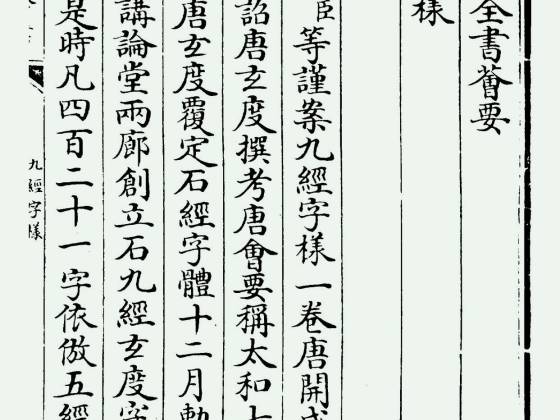 全書薈要
樣
臣等謹案九經字樣一卷唐開成
詔唐玄度撰考唐會要稱太和七
唐玄度覆定石經字體十二月勅
講論堂兩廊創立石九經玄度字
是時凡四百二十一字依倣五經
九經字樣